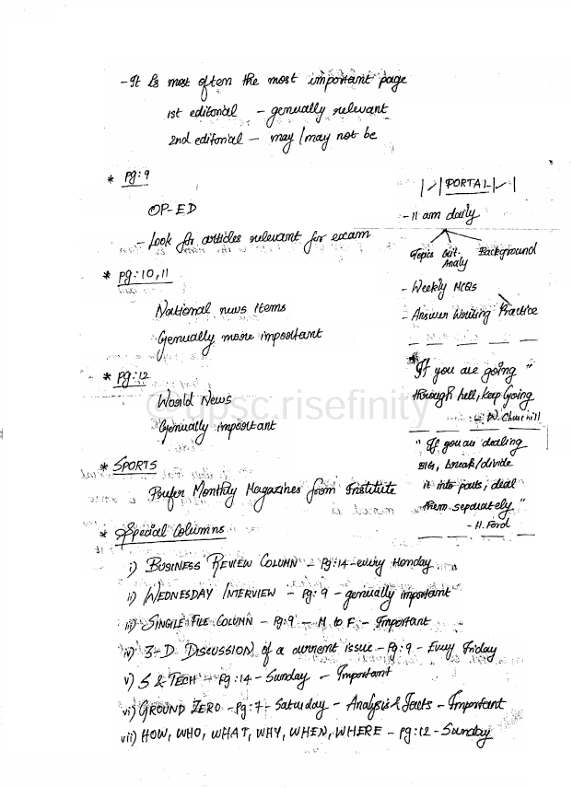 - It is most often the most important page
1st editorial - genually relevant
2nd editorial - may/may not be
* Pg:9
OP-ED
- Look for articles relevant for exam
* Pg:10,11
National news items
Genually more important
* Pg:12
World News
Genually important
* SPORTS
Prefer Monthly Magazines from Institute
* Special Columns
i) BUSINESS REVIEW COLUMN - Pg:14 - every Monday
ii) WEDNESDAY INTERVIEW - Pg:9 - genually important
iii) SINGLE FILE COLUMN - Pg:9 - M to F - Important
iv) 3-D DISCUSSION of a current issue - Pg:9 - Every Friday
v) S & TECH - Pg:14 - Sunday - Important
vi) GROUND ZERO - Pg:7 - Saturday - Analysis & Facts - Important
vii) HOW, WHO, WHAT, WHY, WHEN, WHERE - Pg:12 - Sunday
PORTAL
- 11 am daily
Topics Crit- Background
Analy
- Weekly MCQs
- Answer Writing Practice
"If you are going "
through hell, keep Going
- W. Churchill
" If you are dealing
BIG, break/divide
it into parts, deal
them separately "
- H. Ford
@upsc.risefinity